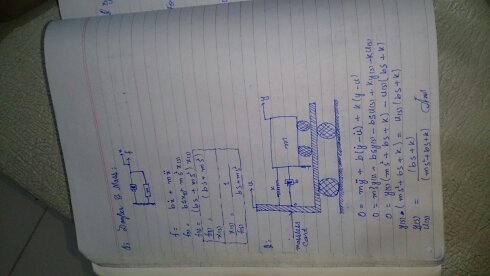 Q: Damper & Mass:
f
m
f = bẋ + mẍ
f(s) = bsx(s) + ms²x(s)
f(s) = (bs + ms²) x(s)
f(s)/x(s) = (bs + ms²)
x(s)/f(s) = 1/(bs + ms²)
Q:
→ u
→ y
k
m
b
massless
cart
0 = mÿ + b(ẏ - u̇) + k(y - u)
0 = ms²y(s) + bsy(s) - bsu(s) + ky(s) - ku(s)
0 = y(s) (ms² + bs + k) - u(s) (bs + k)
y(s) (ms² + bs + k) = u(s) (bs + k)
y(s)/u(s) = (bs + k)/(ms² + bs + k)